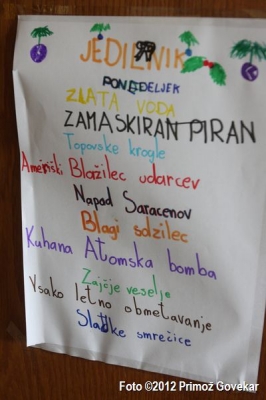 JEDILNIK
PONEDELJEK
ZLATA VODA
ZAMASKIRAN PIRAN
Topovske krogle
Ameriški Blažilec udarcev
Napad Saracenov
Blagi solzilec
Kuhana Atomska bomba
Zajčje veselje
Vsako letno obmetavanje
Sladke smrečice
Foto ©2012 Primož Govekar